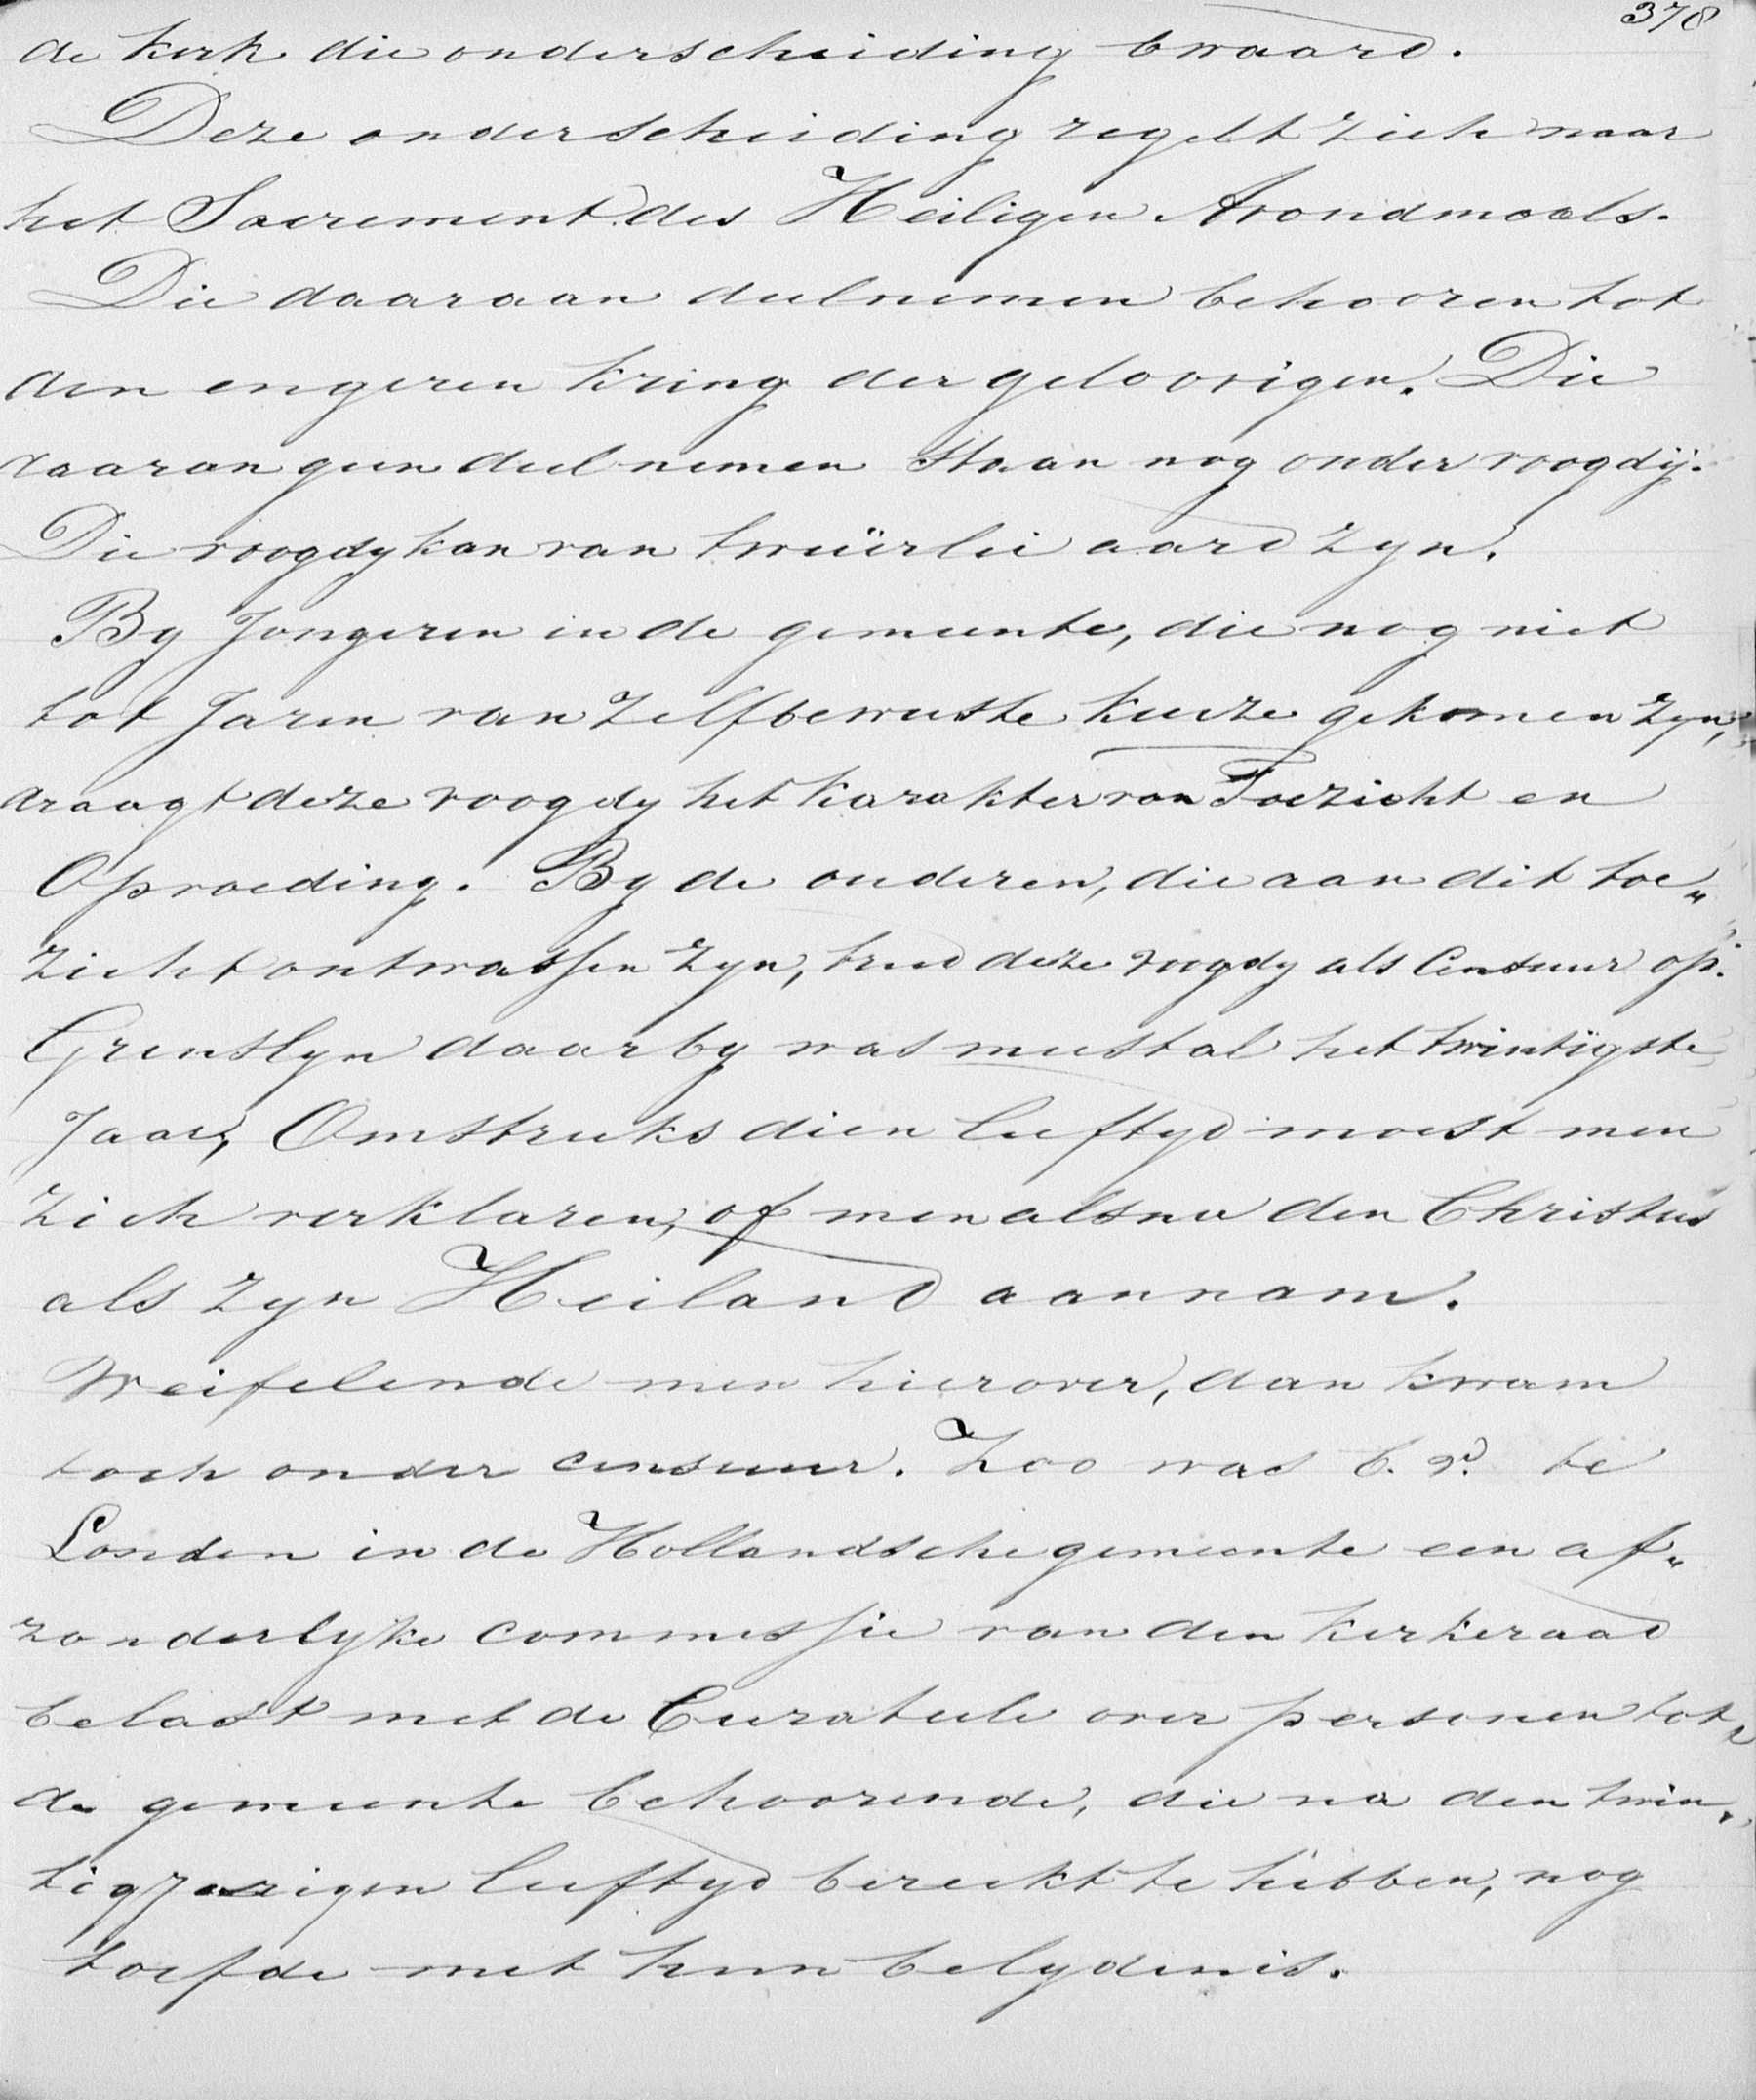 378
de kerk die onderscheiding bwaard.
Deze onderscheiding regelt zich naar
het Sacrement des Heiligen Avondmaals.
Die daaraan deelnemen behooren tot
den engeren kring der geloovigen. Die
daaraan geen deel nemen staan nog onder voogdij.
Die voogdy kan van tweeërlei aard zyn.
By Jongeren in de gemeente, die nog niet
tot Jaren van Zelfbewuste keuze gekomen zyn,
draagt deze voogdy het karakter van Toezicht en
Opvoeding. By de ouderen, die aan dit toe„
zicht ontwassen zyn, treed deze voogdy als Censuur op.
Grenslyn daarby was meestal het twintigste
Jaar, Omstreeks dien leeftyd moest men
zich verklaren, of men alsnu den Christus
als zyn Heiland aannam.
Weifelende men hierover, dan kwam
toch onder censuur. Zoo was b.v. te
Londen in de Hollandsche gemeente een af„
zonderlyke commessie van den kerkeraad
belast met de Curateele over personen tot
de gemeente behoorende, die na den twin„
tigjarigen leeftyd bereikt te hebben, nog
toefde met hun belydenis.